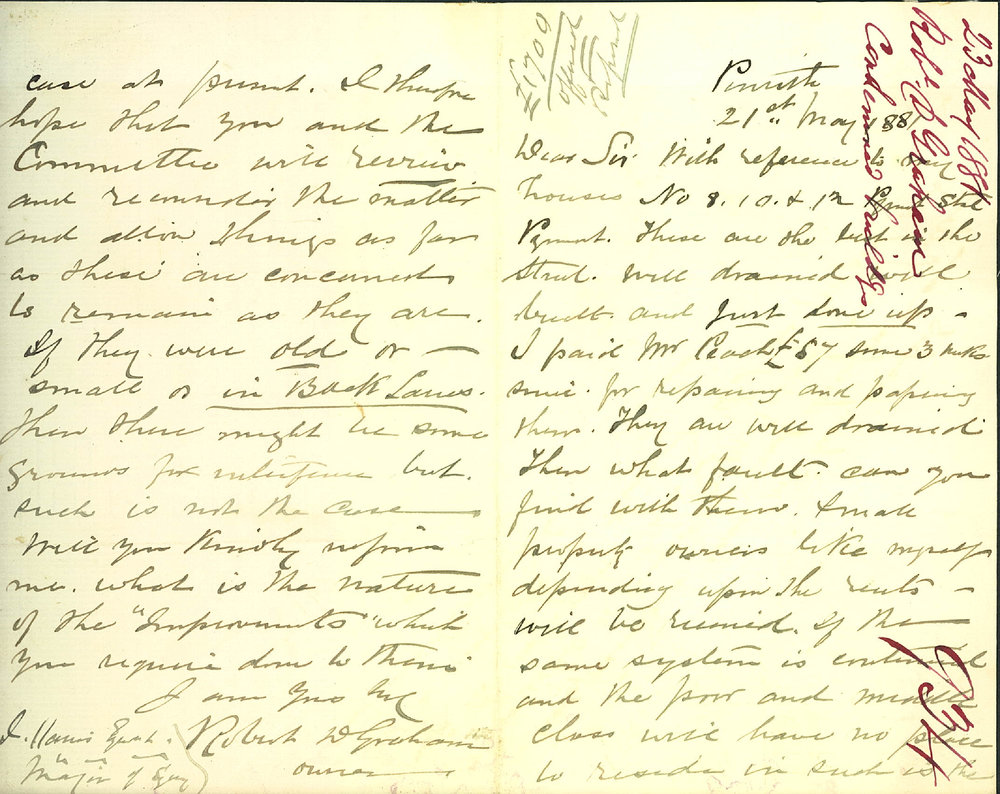 Penrith
21st May 188
Dear Sir With reference to my
houses No 8. 10. & 12 Pyrmont Street
Pyrmont. These are the best in the
Street. Well drained well
built and Just done up –
I paid Mr £57 some 3 weeks
since for repairing and papering
them. They are well drained
Then what fault can you
find with them. Small
property owners like myself
depending upon the rents –
will be ruined. If the
same system is continued
and the poor and middle
Class will have no place
to reside in such is the
case at present. I therefore
hope that you and the
Committee will review
and reconsider the matter
and allow things as far
as these are concerned
to remain as they are.
If they were old or –
small or in Back Lanes.
then there might be some
grounds for interference but
such is not the case
Will you Kindly inform
me. what is the nature
of the "Improvements" which
you require done to them
I am yrs &c
Robert D Graham
owner
J. Harris Esqr.
Mayor of Sydney
£1709
offered
Refused
23 May 1881
Robt. D Graham
Condemned buildgs
934